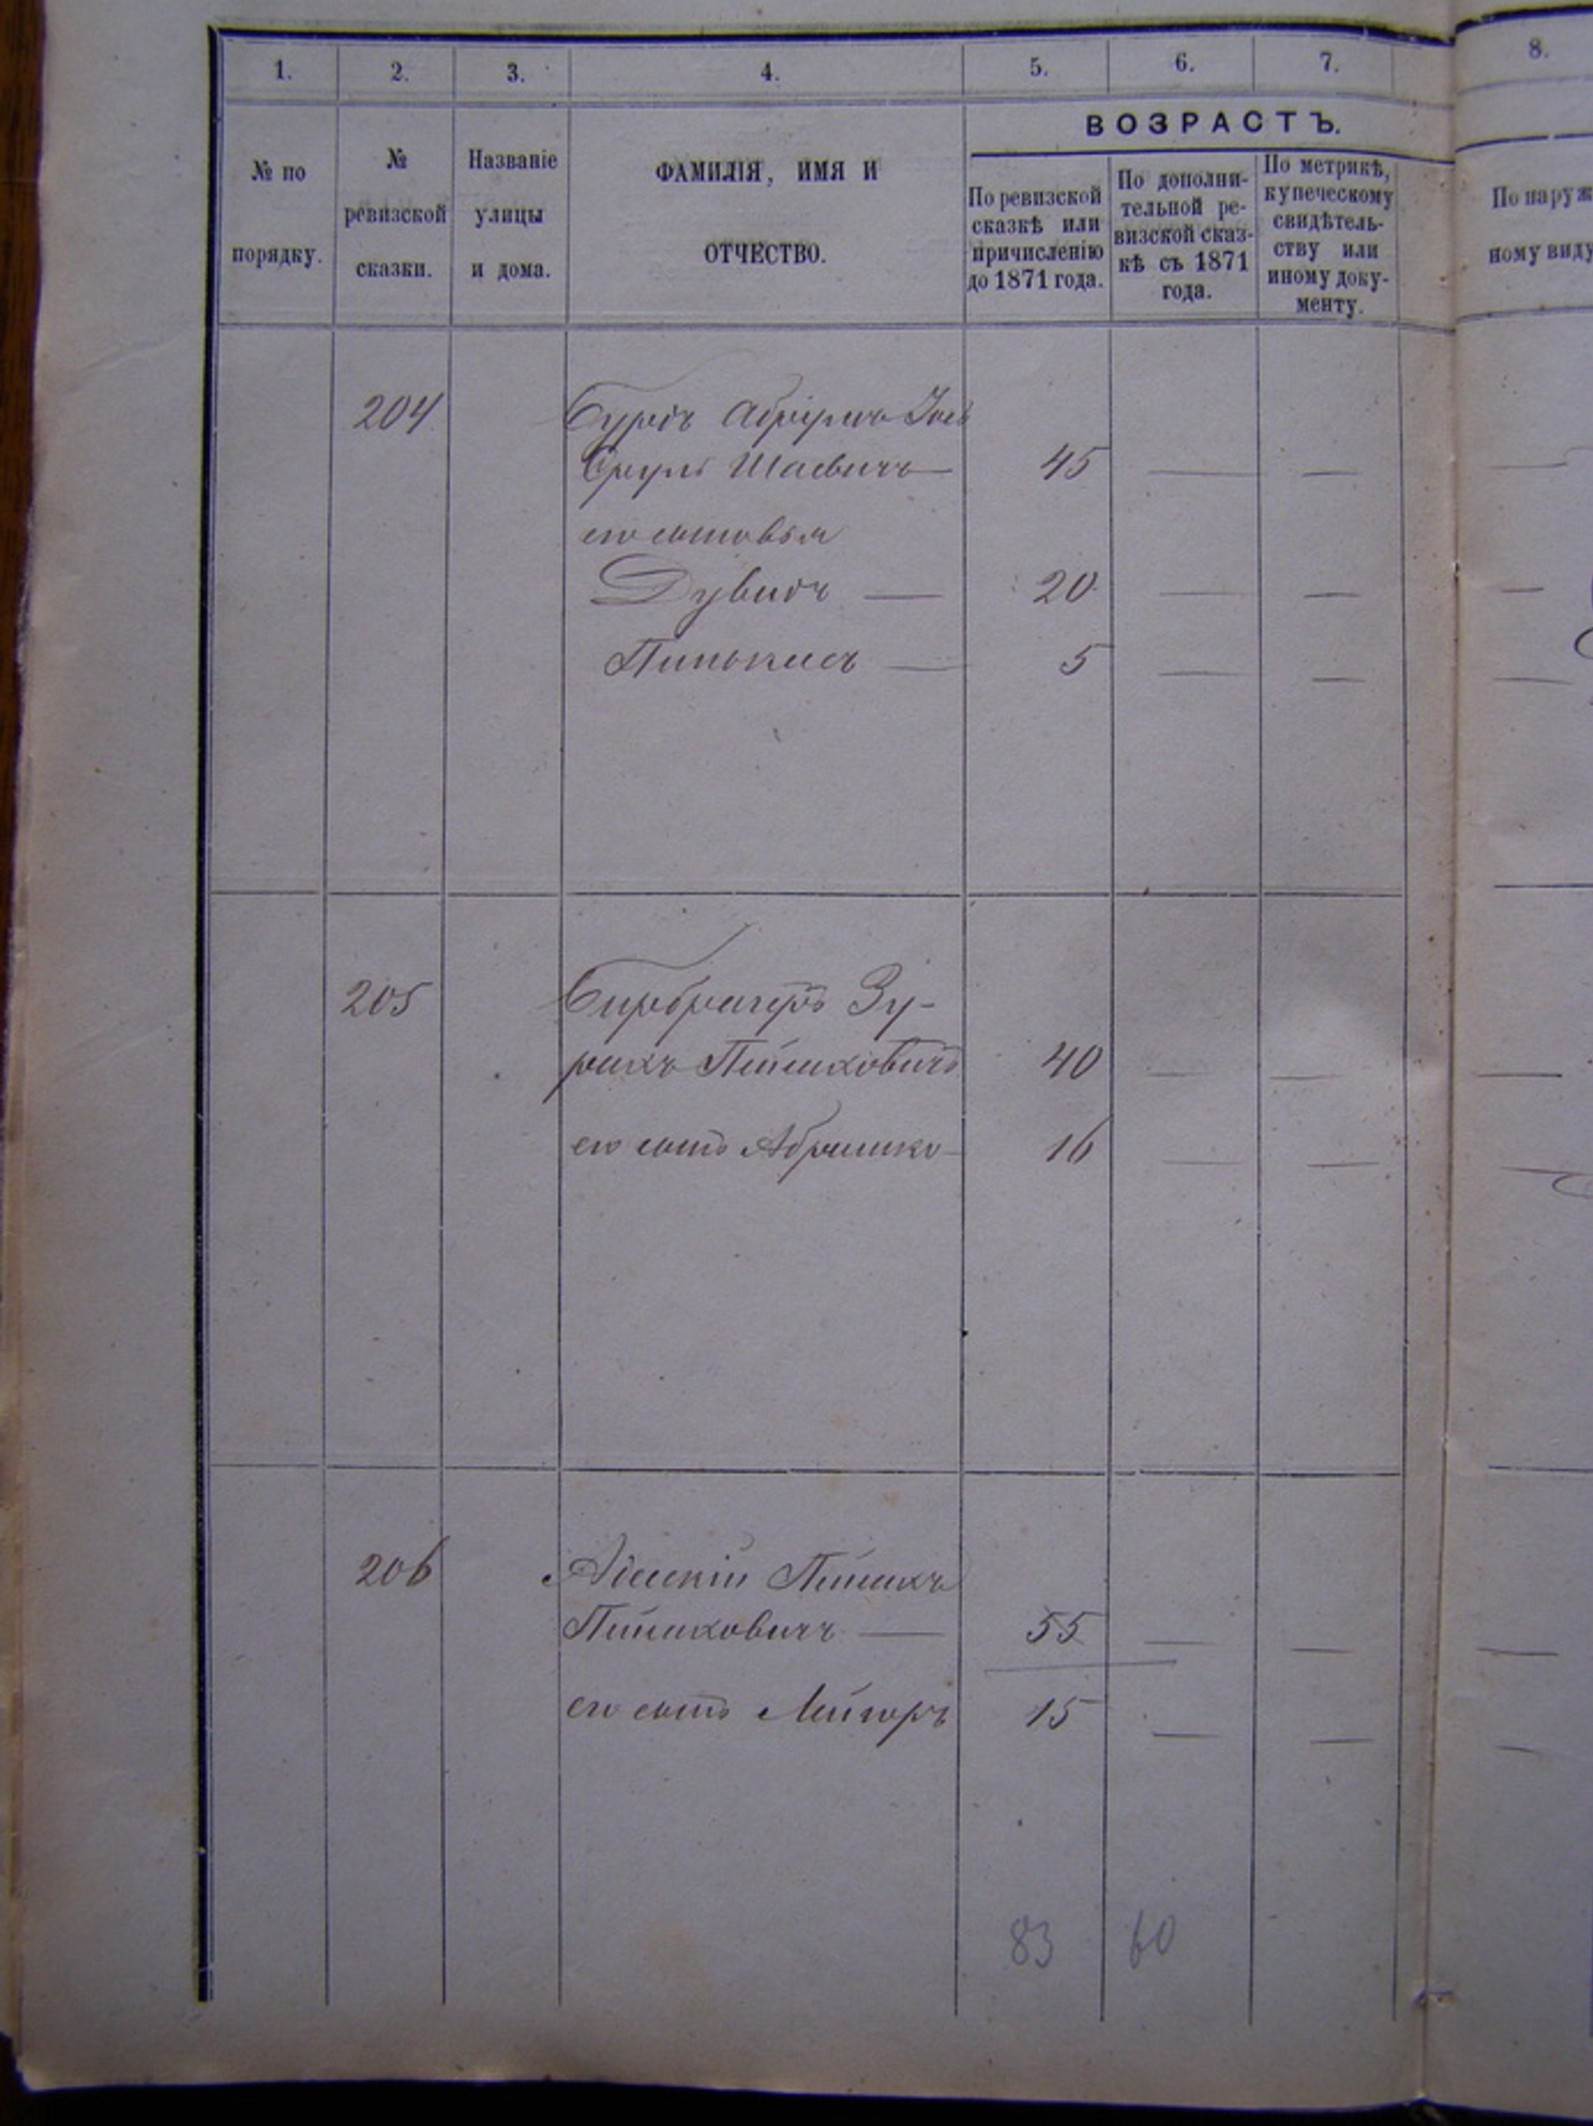 1. 2. 3. 4. 5. 6. 7. 8.
ВОЗРАСТЪ.
№ по
порядку.
№
ревизской
сказки.
Названіе
улицы
и дома.
ФАМИЛІЯ, ИМЯ И
ОТЧЕСТВО.
По ревизской
сказкѣ или
причисленію
до 1871 года.
По дополни-
тельной ре-
визской сказ-
кѣ съ 1871
года.
По метрикѣ,
купеческому
свидѣтель-
ству или
иному доку-
менту.
По наруж
ному виду
204 Бурдъ Абрумъ
Сруль Шаевичъ — 45 — —
его сыновья
Дувидъ — 20 — —
Пинькасъ — 5 — —
205 Зу-
рахъ Пейсаховичъ 40 — —
его сынъ Абрамко — 16 — —
206 Пейсахъ
Пейсаховичъ — 55 — —
его сынъ Лейзоръ 15 — —
83 60